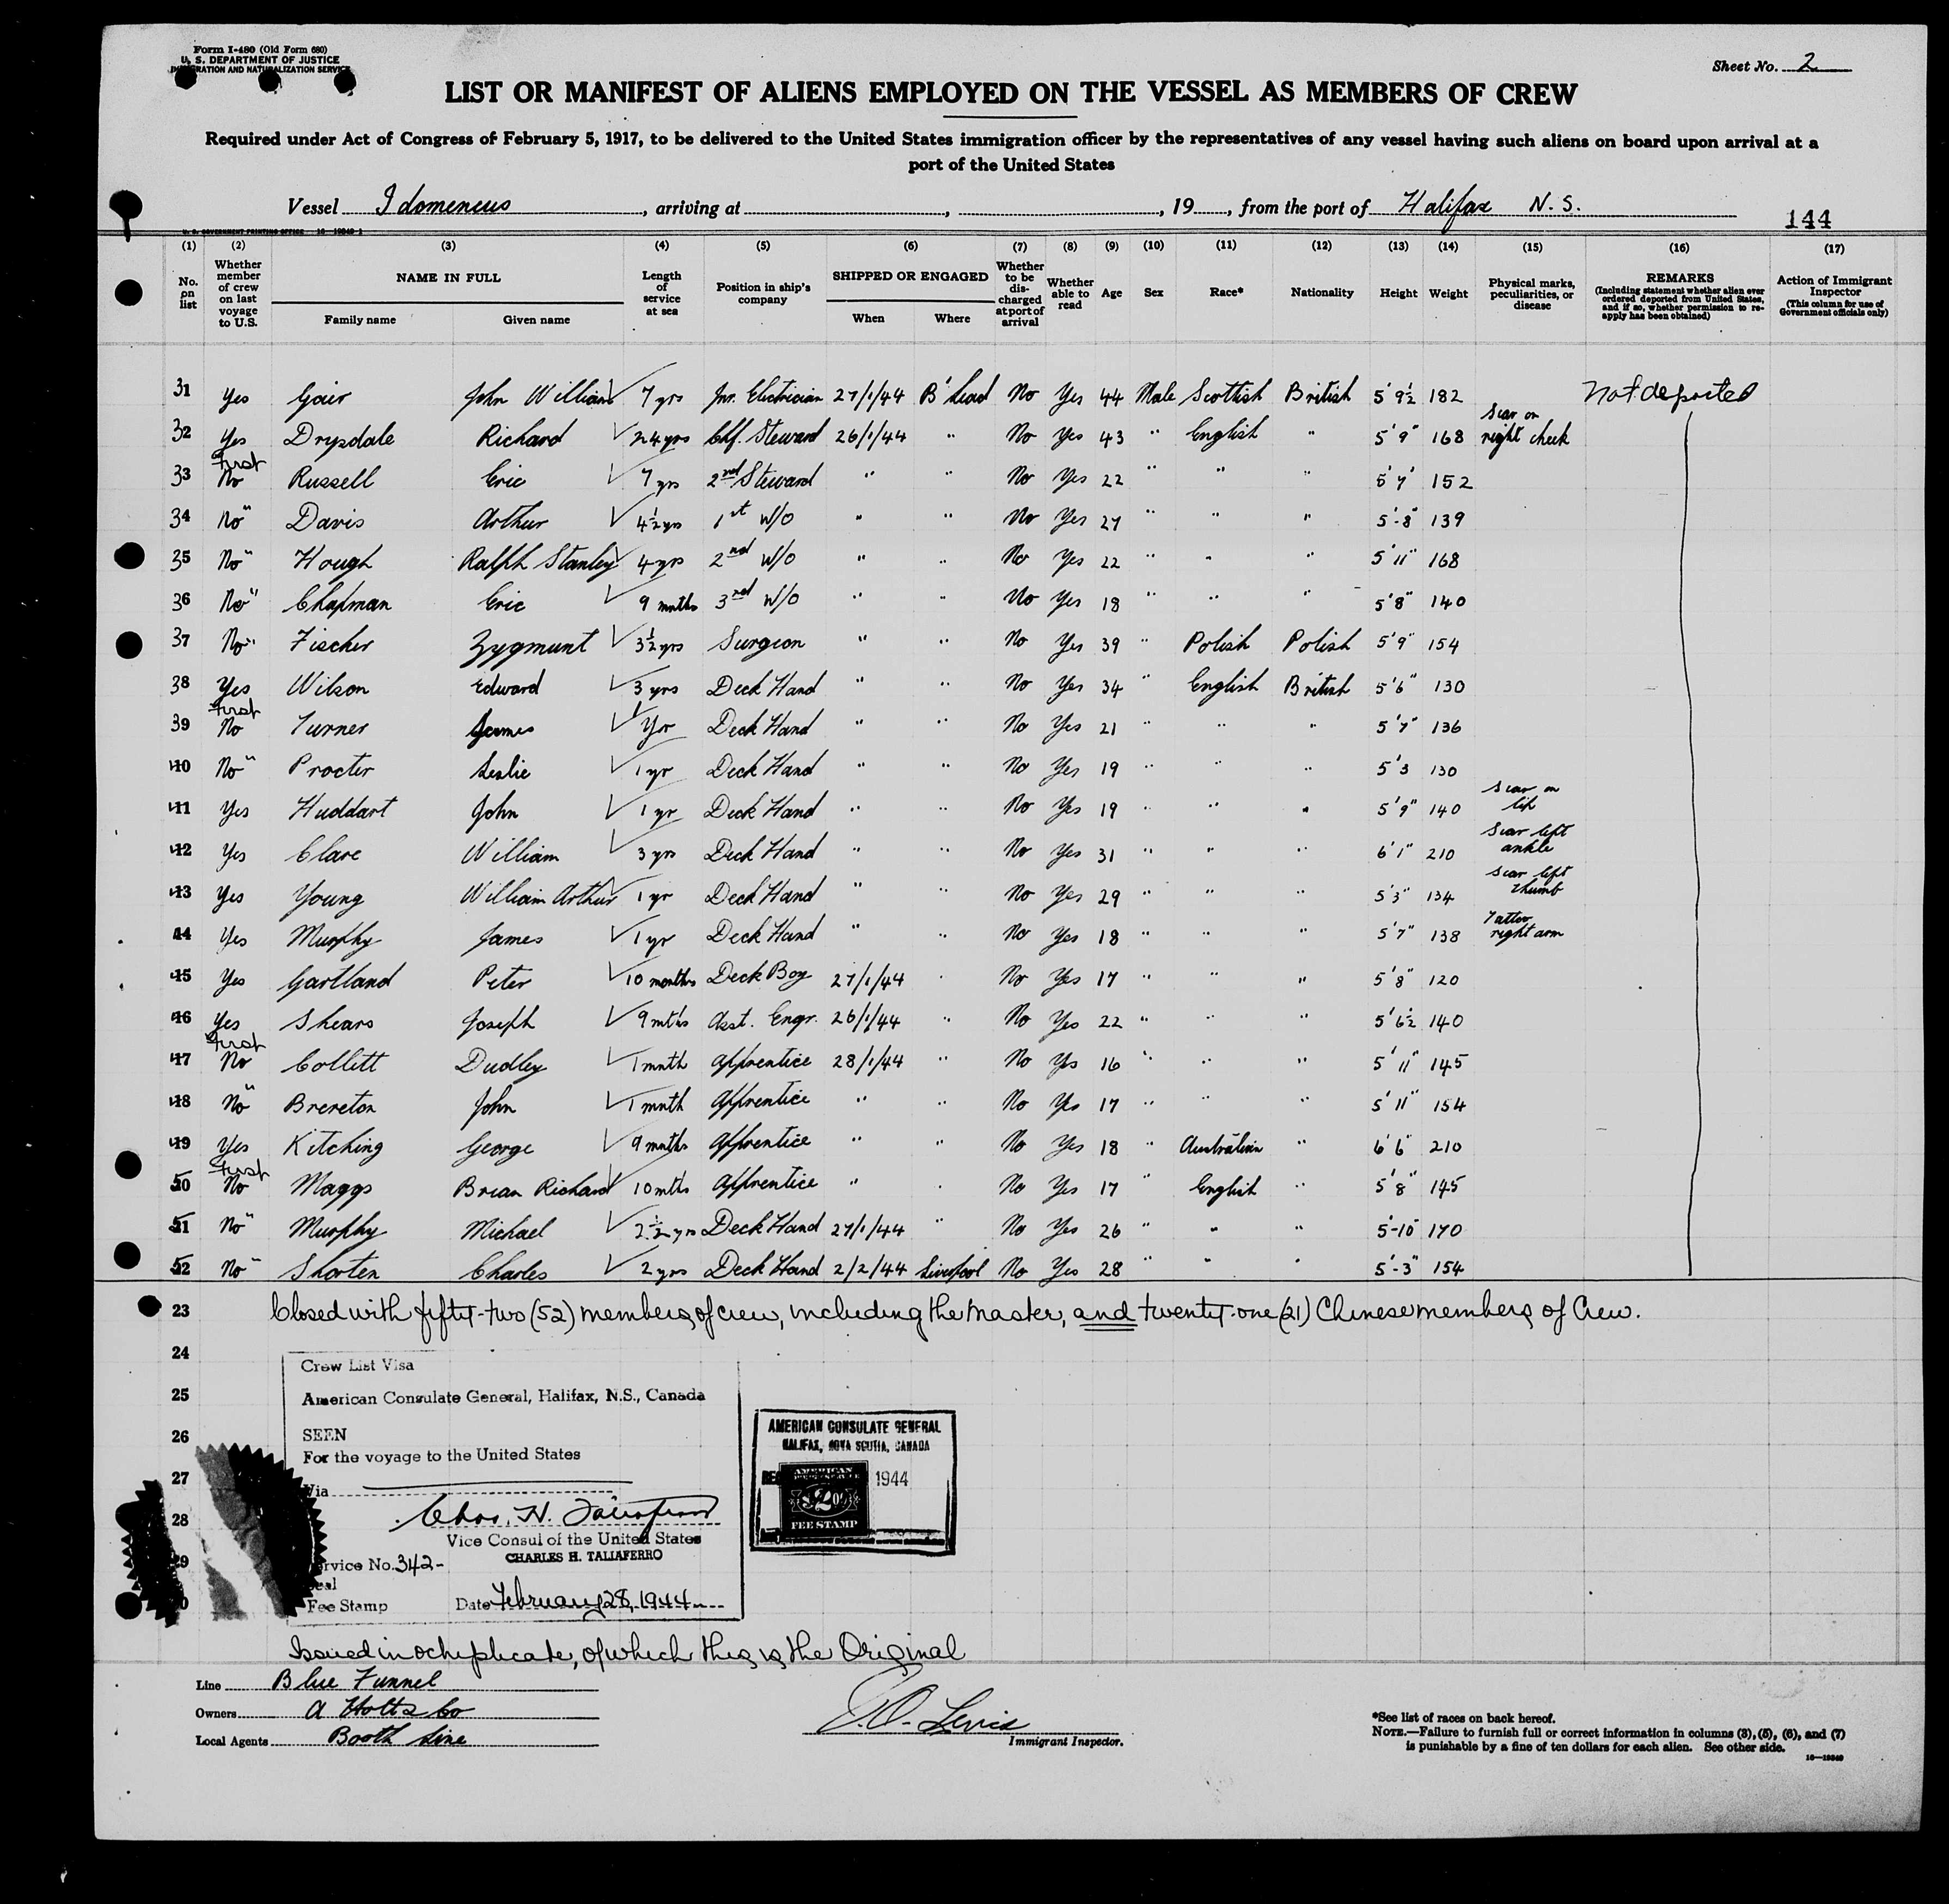 Form I-480 (Old Form 680)
U. S. DEPARTMENT OF JUSTICE
IMMIGRATION AND NATURALIZATION SERVICE
Sheet No. 2
LIST OR MANIFEST OF ALIENS EMPLOYED ON THE VESSEL AS MEMBERS OF CREW
Required under Act of Congress of February 5, 1917, to be delivered to the United States immigration officer by the representatives of any vessel having such aliens on board upon arrival at a
port of the United States
Vessel Idomeneus, arriving at , , 19 , from the port of Halifax N. S.
144
(1) (2) (3) (4) (5) (6) (7) (8) (9) (10) (11) (12) (13) (14) (15) (16) (17)
No. on list
Whether member of crew on last voyage to U.S.
NAME IN FULL
Family name Given name
Length of service at sea
Position in ship's company
SHIPPED OR ENGAGED
When Where
Whether to be discharged at port of arrival
Whether able to read
Age
Sex
Race*
Nationality
Height
Weight
Physical marks, peculiarities, or disease
REMARKS
(Including statement whether alien ever ordered deported from United States, and if so, whether permission to re-apply has been obtained)
Action of Immigrant Inspector
(This column for use of Government officials only)
31 Yes Gair John William 7 yrs Jnr. Electrician 27/1/44 B'head No Yes 44 Male Scottish British 5' 9½ 182 Not deported
32 Yes Drysdale Richard 24 yrs Chf. Steward 26/1/44 " No Yes 43 " English " 5' 9" 168 Scar on right cheek
33 First No Russell Eric 7 yrs 2nd Steward " " No Yes 22 " " " 5' 7" 152
34 No " Davis Arthur 4½ yrs 1st W/O " " No Yes 27 " " " 5'-8" 139
35 No " Hough Ralph Stanley 4 yrs 2nd W/O " " No Yes 22 " " " 5' 11" 168
36 No " Chapman Eric 9 mnths 3rd W/O " " No Yes 18 " " " 5'8" 140
37 No " Fischer Zygmunt 3½ yrs Surgeon " " No Yes 39 " Polish Polish 5'9" 154
38 Yes Wilson Edward 3 yrs Deck Hand " " No Yes 34 " English British 5'6" 130
39 First No Turner James 1 Yr Deck Hand " " No Yes 21 " " " 5'7" 136
40 No " Procter Leslie 1 yr Deck Hand " " No Yes 19 " " " 5'3 130
41 Yes Huddart John 1 yr Deck Hand " " No Yes 19 " " " 5'9" 140 Scar on lip
42 Yes Clare William 3 yrs Deck Hand " " No Yes 31 " " " 6'1" 210 Scar left ankle
43 Yes Young William Arthur 1 yr Deck Hand " " No Yes 29 " " " 5'3" 134 Scar left thumb
44 Yes Murphy James 1 yr Deck Hand " " No Yes 18 " " " 5'7" 138 Tattoo right arm
45 Yes Gartland Peter 10 months Deck Boy 27/1/44 " No Yes 17 " " " 5'8" 120
46 Yes Shears Joseph 9 mths Asst. Engr. 26/1/44 " No Yes 22 " " " 5'6½ 140
47 First No Collett Dudley 1 mnth Apprentice 28/1/44 " No Yes 16 " " " 5' 11" 145
48 No " Brereton John 1 mnth Apprentice " " No Yes 17 " " " 5' 11" 154
49 Yes Kitching George 9 mnths Apprentice " " No Yes 18 " Australian " 6'6" 210
50 First No Maggs Brian Richard 10 mths Apprentice " " No Yes 17 " English " 5'8" 145
51 No " Murphy Michael 2½ yrs Deck Hand 27/1/44 " No Yes 26 " " " 5'-10" 170
52 No " Shorten Charles 2 yrs Deck Hand 2/2/44 Liverpool No Yes 28 " " " 5'-3" 154
23 Closed with fifty-two (52) members of crew, including the Master, and twenty-one (21) Chinese members of Crew.
24
25
26
27
28
29
Crew List Visa
American Consulate General, Halifax, N.S., Canada
SEEN
For the voyage to the United States
Via
Chas. H. Taliaferro
Vice Consul of the United States
CHARLES H. TALIAFERRO
Service No. 342-
Seal
Fee Stamp Date February 28, 1944
AMERICAN CONSULATE GENERAL
HALIFAX, NOVA SCOTIA, CANADA
1944
AMERICAN
$2.00
FEE STAMP
Issued in octuplicate, of which this is the Original
Line Blue Funnel
Owners A Holt & Co
Local Agents Booth Line
Lewis
Immigrant Inspector.
*See list of races on back hereof.
NOTE.—Failure to furnish full or correct information in columns (3), (5), (6), and (7)
is punishable by a fine of ten dollars for each alien. See other side.